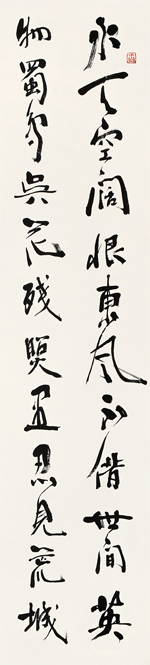 水天空闊恨東風不借世間英
物蜀鳥吳花殘照里忍見荒城